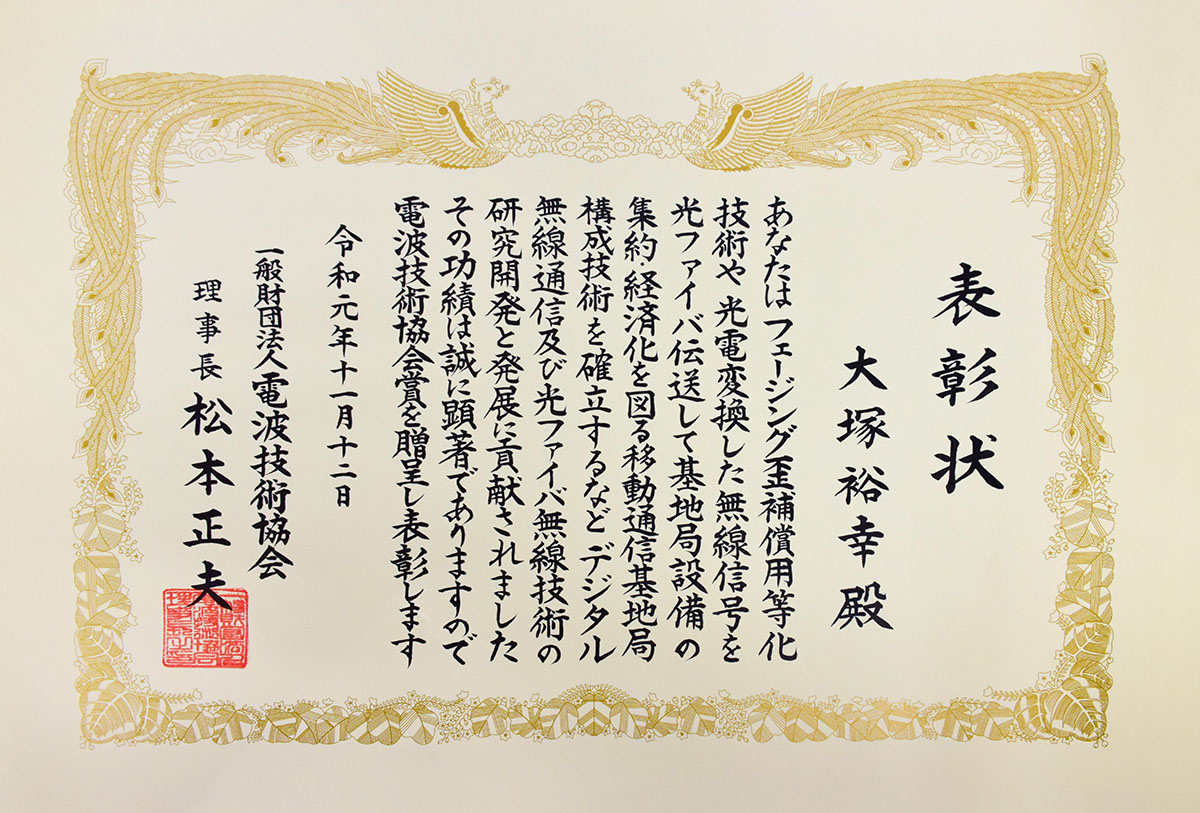 表彰状
大塚裕幸殿
あなたはフェージング歪補償用等化
技術や光電変換した無線信号を
光ファイバ伝送して基地局設備の
集約・経済化を図る移動通信基地局
構成技術を確立するなどデジタル
無線通信及び光ファイバ無線技術の
研究開発と発展に貢献されました
その功績は誠に顕著でありますので
電波技術協会賞を贈呈し表彰します
令和元年十一月十二日
一般財団法人電波技術協会
理事長松本正夫